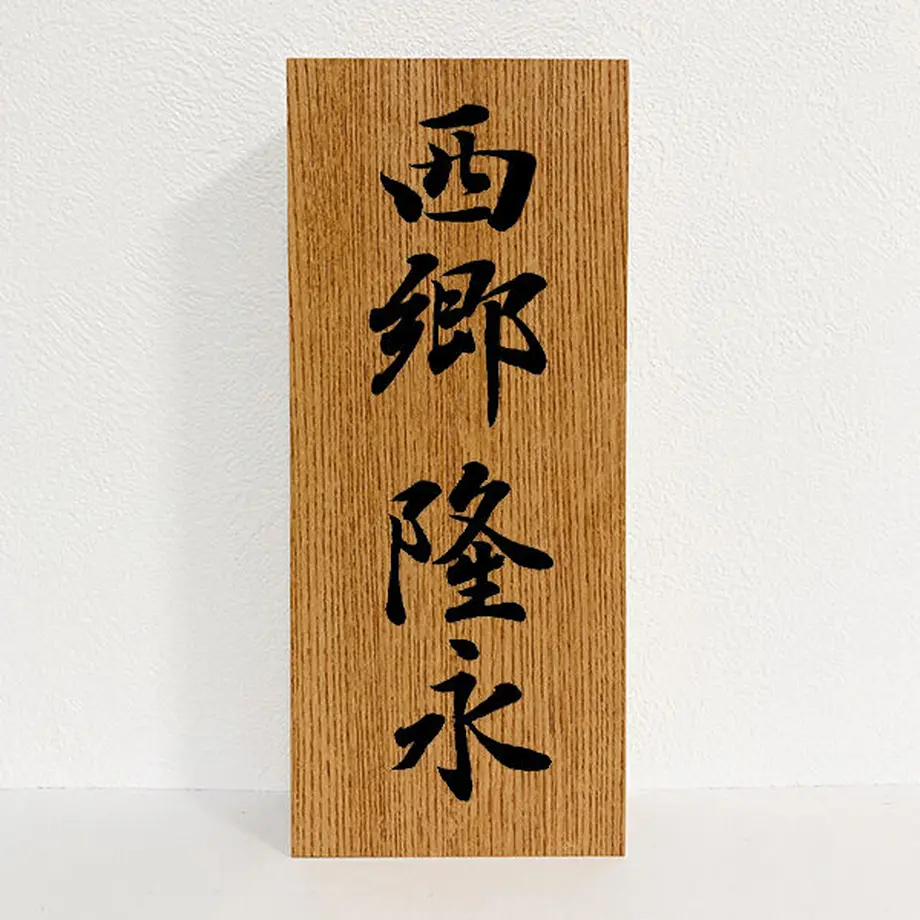 西郷 隆永